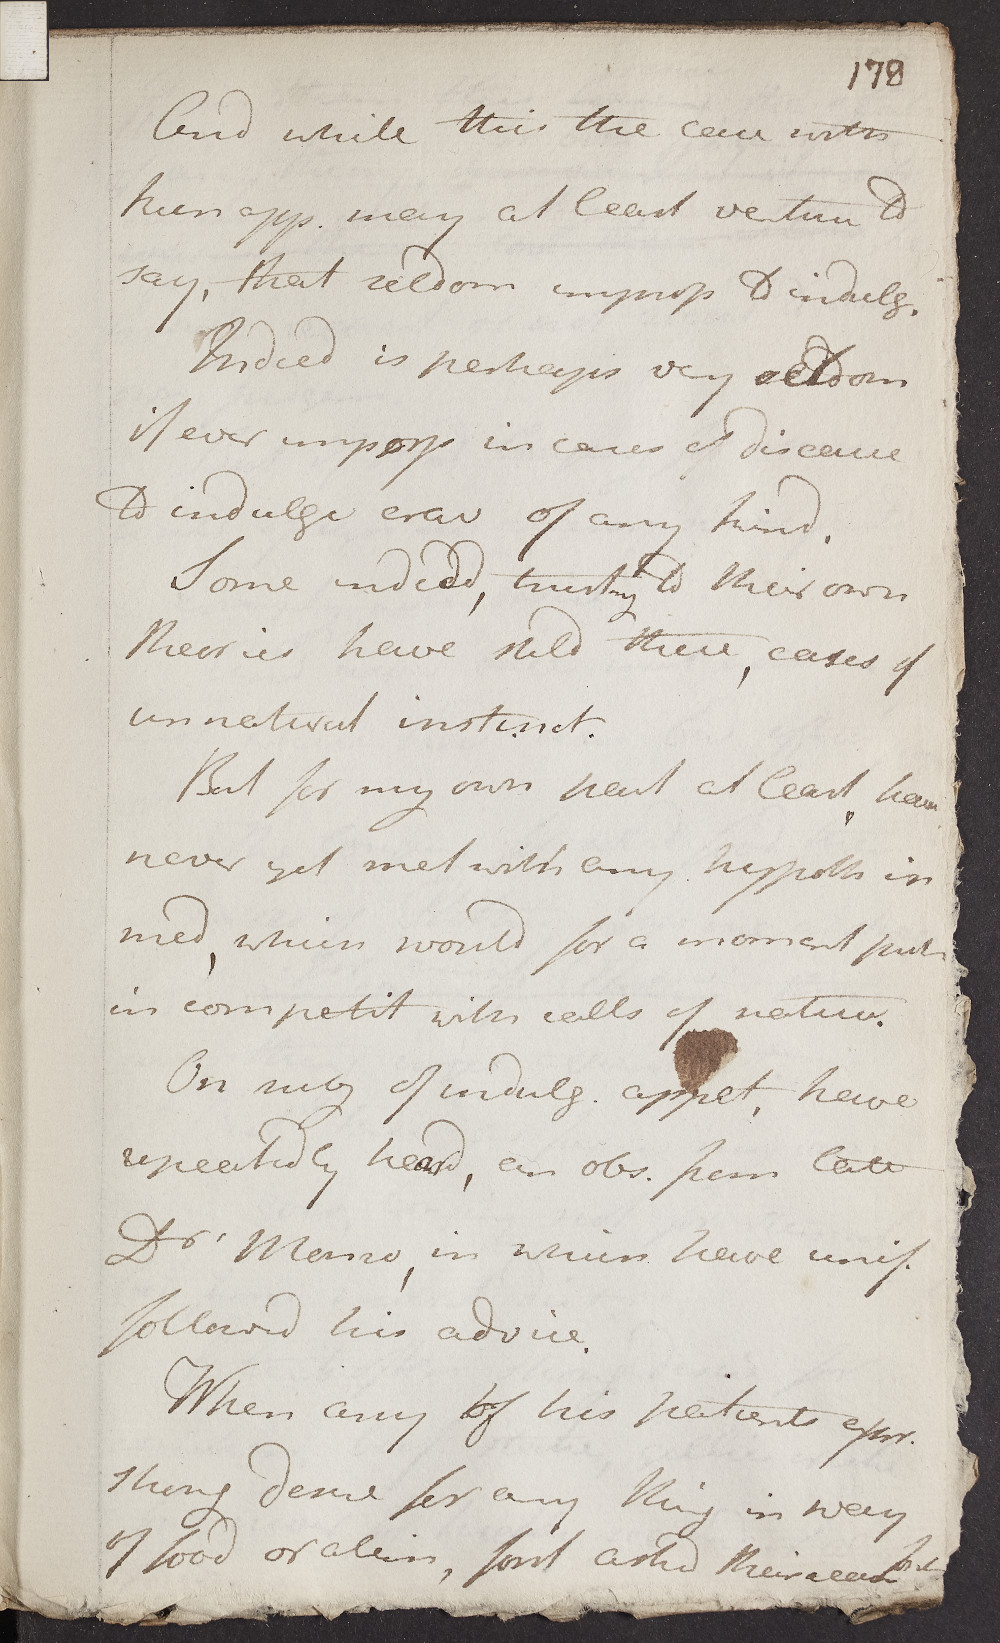 178
And while this the case with
hum app. may at least venture to
say, that seldom improp to indulg.
Indeed is perhaps very seldom
if ever improp in cases of disease
to indulge crav of any kind.
Some indeed, trusting to their own
theories have stild these, cases of
unnatural instinct.
But for my own part at least, have
never yet met with any hypoth in
med, which would for a moment put
in competit with calls of nature.
On subj of indulg. appet, have
repeatedly heard, an obs. from late
Dr. Monro, in which have unif.
followed his advice.
When any of his patients expr.
strong desire for any thing in way
of food or drin, first asked their